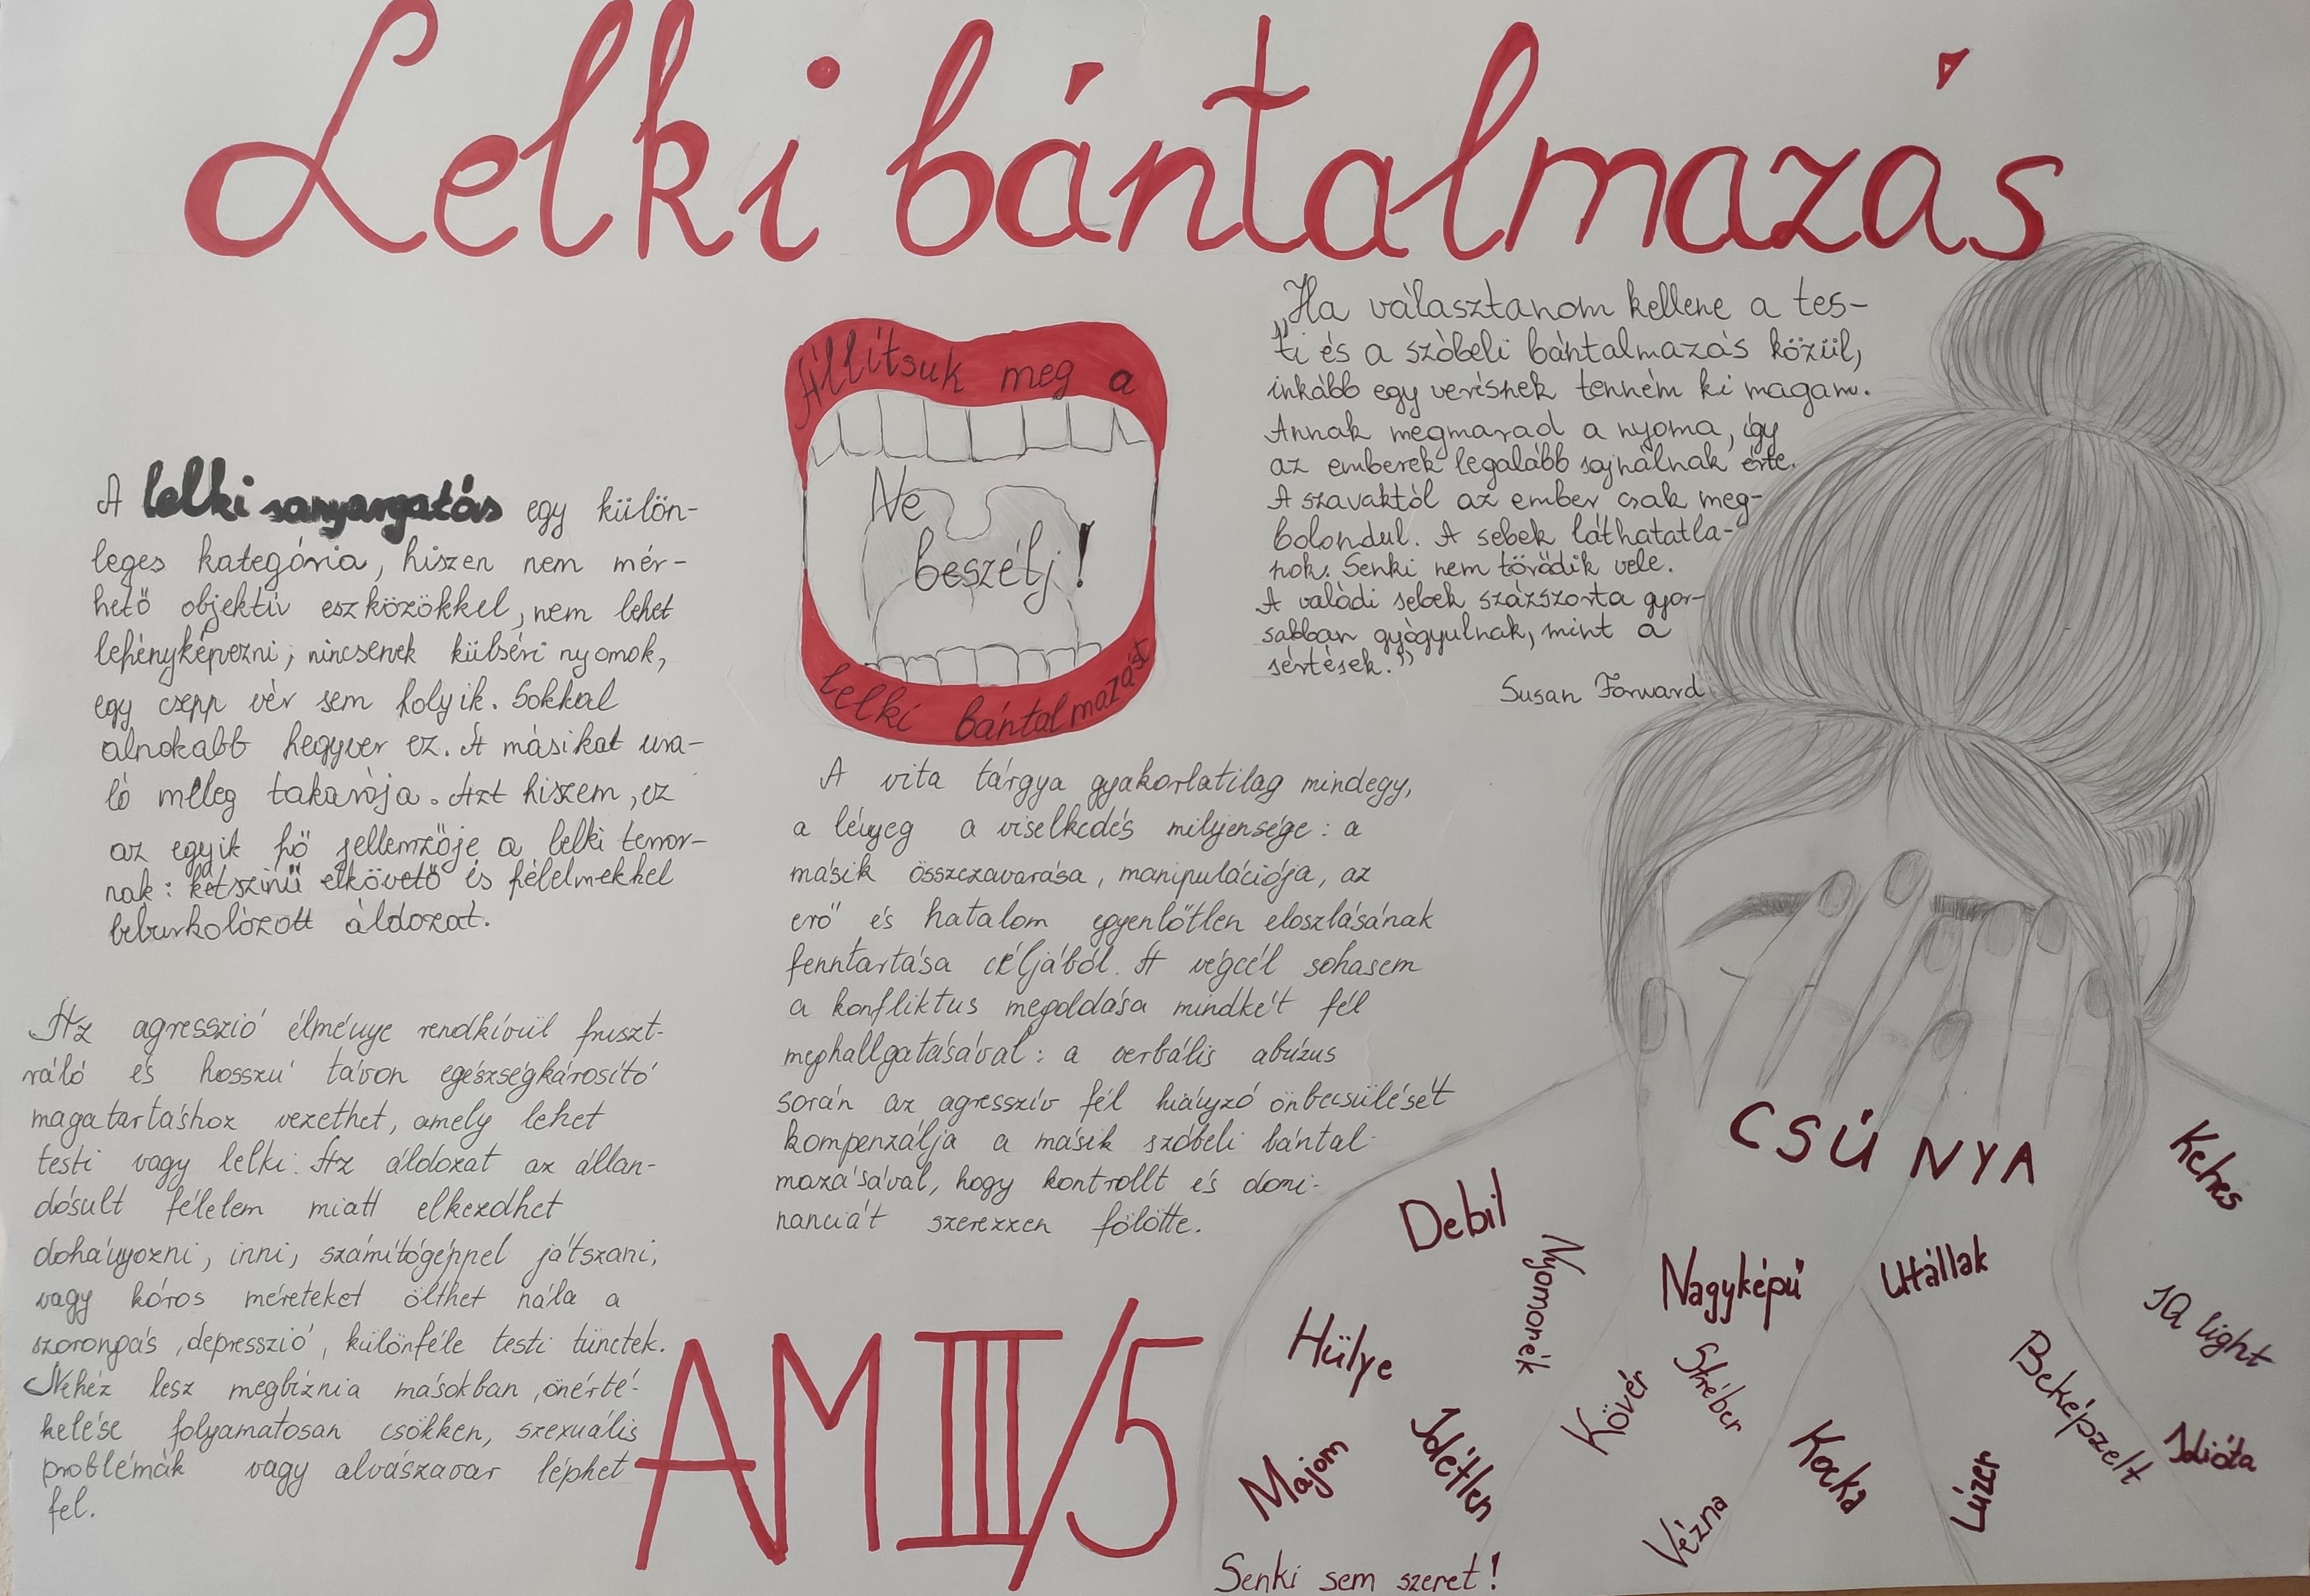 Lelki bántalmazás
A lelki sanyargatás egy külön-
leges kategória, hiszen nem mér-
hető objektív eszközökkel, nem lehet
lefényképezni, nincsenek külséri nyomok,
egy csepp vér sem folyik. Sokkal
alnokabb fegyver ez. A másikat ura-
ló meleg takarója. Azt hiszem, ez
az egyik fő jellemzője a lelki terror-
nak: kétszínű elkövető és félelmekkel
beburkolózott áldozat.
Az agresszió élménye rendkívül fruszt-
ráló és hosszú távon egészségkárosító
magatartáshoz vezethet, amely lehet
testi vagy lelki. Az áldozat az állan-
dósult félelem miatt elkezdhet
dohányozni, inni, számítógéppel játszani,
vagy kóros méreteket ölthet nála a
szorongás, depresszió, különféle testi tünetek.
Nehéz lesz megbíznia másokban, önérté-
kelése folyamatosan csökken, szexuális
problémák vagy alvászavar léphet
fel.
Állítsuk meg a
Ne
beszélj!
lelki bántalmazást
A vita tárgya gyakorlatilag mindegy,
a lényeg a viselkedés milyensége: a
másik összezavarása, manipulációja, az
erő és hatalom egyenlőtlen eloszlásának
fenntartása céljából. A végcél sohasem
a konfliktus megoldása mindkét fél
meghallgatásával: a verbális abúzus
során az agresszív fél hiányzó önbecsülését
kompenzálja a másik szóbeli bántal-
mazásával, hogy kontrollt és domi-
nanciát szerezzen fölötte.
AM III/5
„Ha választanom kellene a tes-
ti és a szóbeli bántalmazás közül,
inkább egy verésnek tenném ki magam.
Annak megmarad a nyoma, így
az emberek legalább sajnálnak érte.
A szavaktól az ember csak meg-
bolondul. A sebek láthatatla-
nok. Senki nem törődik vele.
A valódi sebek százszorta gyor-
sabban gyógyulnak, mint a
sértések."
Susan Forward
CSÚNYA
Kehes
Debil
Nyomorék
Nagyképű
Utállak
IQ light
Hülye
Kövér
Stréber
Beképzelt
Majom
Idétlen
Kocka
Lúzer
Idióta
Vézna
Senki sem szeret!